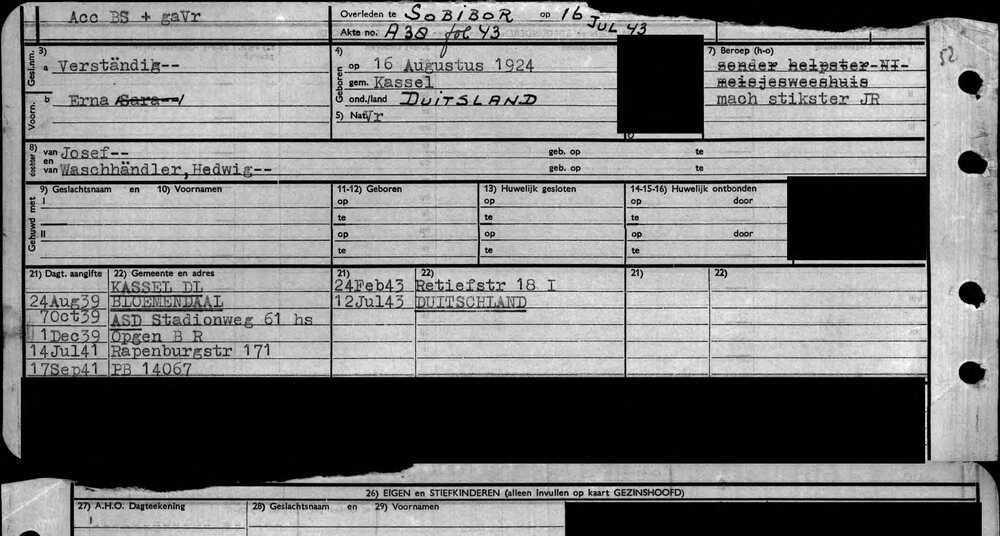 Acc BS + gaVr
Overleden te SOBIBOR op 16 JUL 43
Akte no. A38 fol 43
Gesl.nm. 3) a Verständig--
Voorn. b Erna /Sara--/
4) Geboren op 16 Augustus 1924
gem. Kassel
ond./land DUITSLAND
5) Nat. Vr
7) Beroep (h-o)
zonder helpster NI-
meisjesweeshuis
mach stikster JR
52
8) dochter van Josef-- geb. op te
en van Waschhändler, Hedwig-- geb. op te
Gehuwd met 9) Geslachtsnaam en 10) Voornamen 11-12) Geboren 13) Huwelijk gesloten 14-15-16) Huwelijk ontbonden
I op op op door
te te te
II op op op door
te te te
21) Dagt. aangifte 22) Gemeente en adres 21) 22) 21) 22)
KASSEL DL 24Feb43 Retiefstr 18 I
24Aug39 BLOEMENDAAL 12Jul43 DUITSCHLAND
7Oct39 ASD Stadionweg 61 hs
1Dec39 Opgen B R
14Jul41 Rapenburgstr 171
17Sep41 PB 14067
26) EIGEN en STIEFKINDEREN (alleen invullen op kaart GEZINSHOOFD)
27) A.H.O. Dagteekening 28) Geslachtsnaam en 29) Voornamen
I